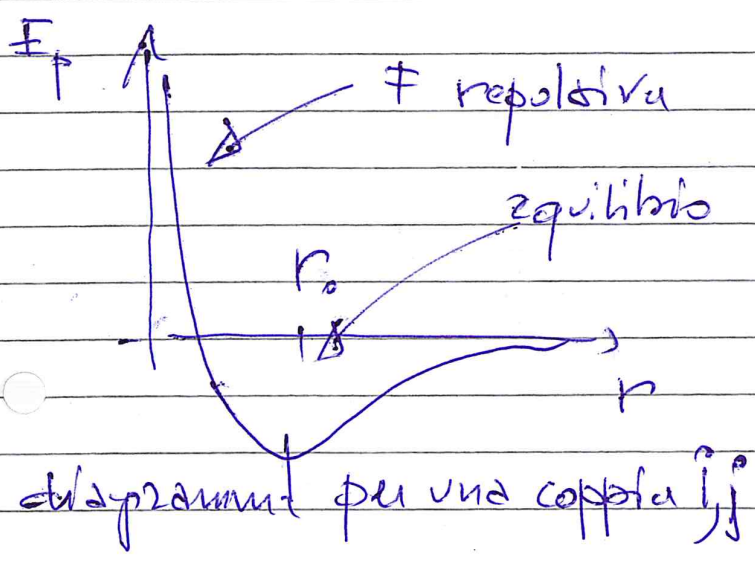 Ep
F repulsiva
equilibrio
r₀
r
diagrammi per una coppia i,j